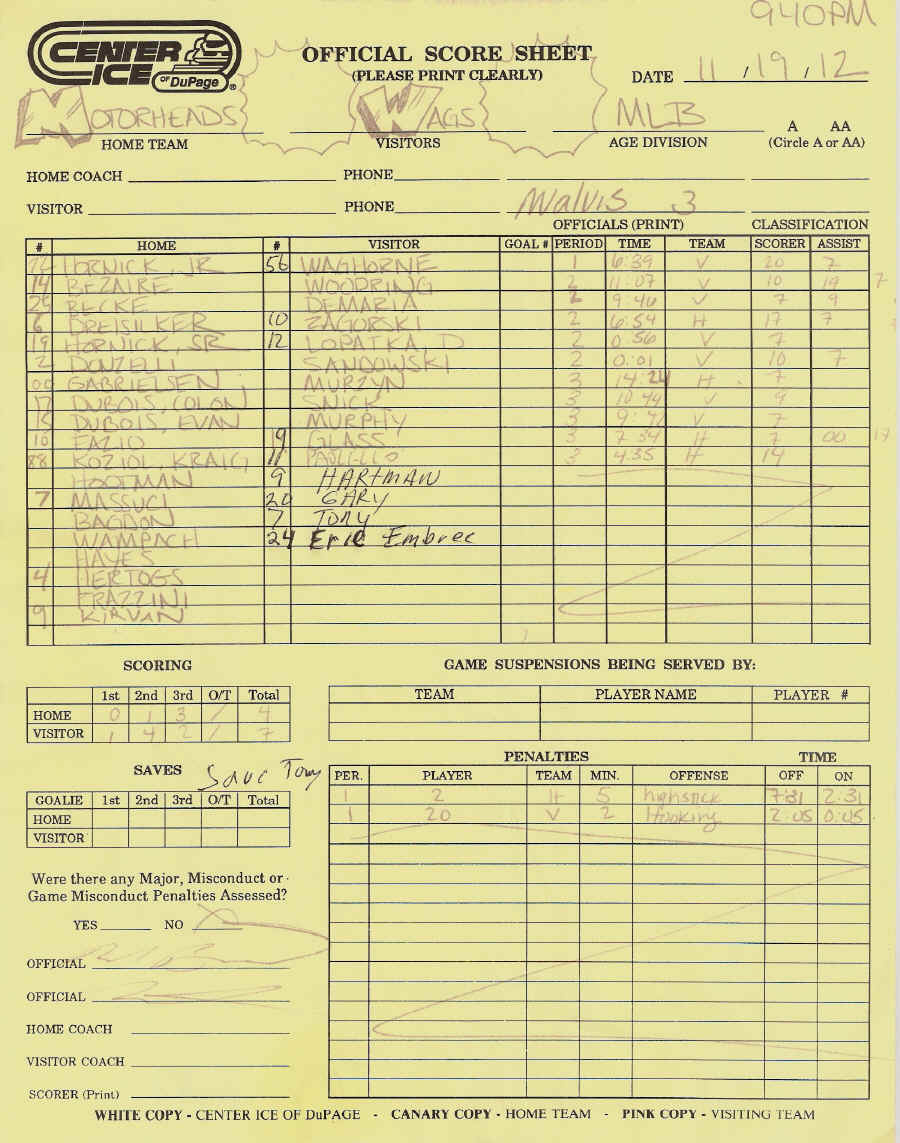 940PM
CENTER ICE OF DuPage ®
OFFICIAL SCORE SHEET
(PLEASE PRINT CLEARLY)
DATE 11 / 19 / 12
MOTORHEADS WAGS MLB
HOME TEAM VISITORS AGE DIVISION
A AA
(Circle A or AA)
HOME COACH PHONE
VISITOR PHONE 3
OFFICIALS (PRINT) CLASSIFICATION
# HOME # VISITOR GOAL # PERIOD TIME TEAM SCORER ASSIST
HORNICK, JR 56 WAGHORNE 1 6:39 V 20 7
14 BEZAIRE WOODRING 2 11:07 V 10 19 7
25 BECKE DEMARIA 2 9:46 V 7 9
6 DREISILKER 10 ZAGORSKI 2 6:54 H 17 7
19 HORNICK, SR 12 LOPATKA, D 2 0:56 V 7
2 DONZELLI SANDOWSKI 2 0:01 V 10 7
00 GABRIELSEN MURZYN 3 14:24 H 7
17 DUBOIS, COLON SNICK 3 10:44 V 9
15 DUBOIS, EVAN MURPHY 3 V 7
10 FAZIO 19 GLASS 3 7:34 H 7 00 17
88 KOZIOL, KRAIG 11 PAOLILLO 3 4:35 H 14
HOOTMAN 9 HARTMAN
7 MASSUCI 20 GARY
BAGDON 7 TONY
WAMPACH 24 Eric Embree
HAYES
4 HERTOGS
FRAZZINI
9 KIRVAN
SCORING
1st 2nd 3rd O/T Total
HOME 0 1 3 / 4
VISITOR 1 4 2 / 7
GAME SUSPENSIONS BEING SERVED BY:
TEAM PLAYER NAME PLAYER #
SAVES Save Tony
GOALIE 1st 2nd 3rd O/T Total
HOME
VISITOR
PENALTIES TIME
PER. PLAYER TEAM MIN. OFFENSE OFF ON
1 2 H 5 highstick 7:31 2:31
1 20 V 2 Hooking 2:05 0:05
Were there any Major, Misconduct or
Game Misconduct Penalties Assessed?
YES NO
OFFICIAL
OFFICIAL
HOME COACH
VISITOR COACH
SCORER (Print)
WHITE COPY - CENTER ICE OF DuPAGE - CANARY COPY - HOME TEAM - PINK COPY - VISITING TEAM